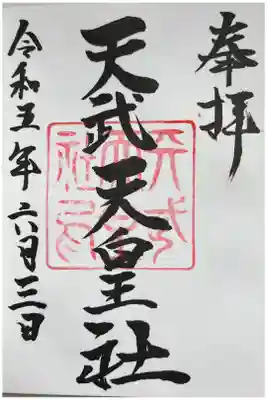 奉拝
天武天皇社
令和五年六月三日